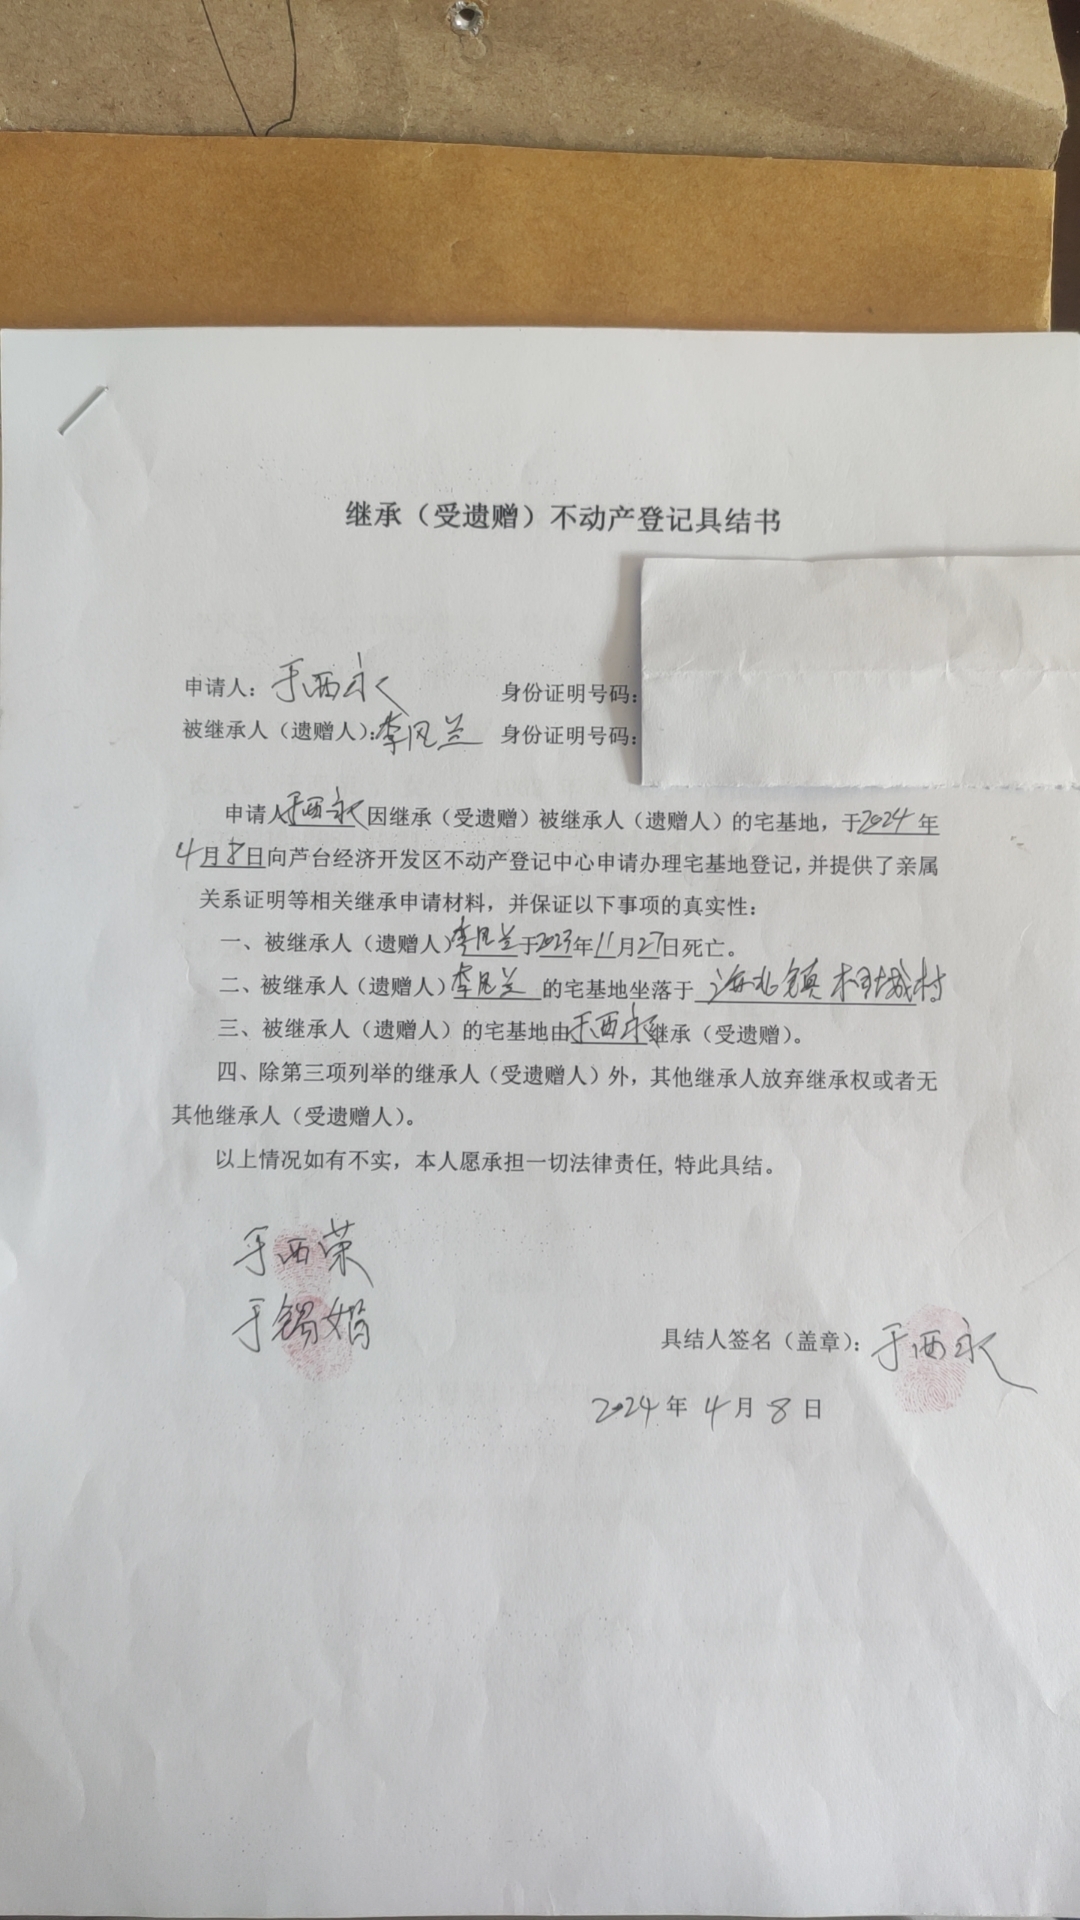 继承（受遗赠）不动产登记具结书
申请人：于西永 身份证明号码：
被继承人（遗赠人）：李凤兰 身份证明号码：
申请人于西永因继承（受遗赠）被继承人（遗赠人）的宅基地，于2024年
4月8日向芦台经济开发区不动产登记中心申请办理宅基地登记，并提供了亲属
关系证明等相关继承申请材料，并保证以下事项的真实性：
一、被继承人（遗赠人）李凤兰于2023年11月27日死亡。
二、被继承人（遗赠人）李凤兰的宅基地坐落于海北镇 村
三、被继承人（遗赠人）的宅基地由于西永继承（受遗赠）。
四、除第三项列举的继承人（受遗赠人）外，其他继承人放弃继承权或者无
其他继承人（受遗赠人）。
以上情况如有不实，本人愿承担一切法律责任，特此具结。
于西荣
于锡娟
具结人签名（盖章）：于西永
2024年4月8日